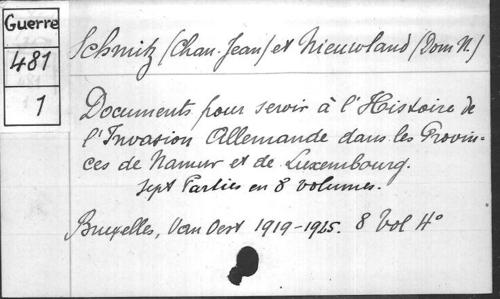 Guerre
481
1
Schmitz (Chan. Jean) et Nieuwland (Dom N.)
Documents pour servir à l'Histoire de
l'Invasion Allemande dans les Provin-
ces de Namur et de Luxembourg.
Sept Parties en 8 volumes.
Bruxelles, Van Oest 1919-1925. 8 Vol 4°